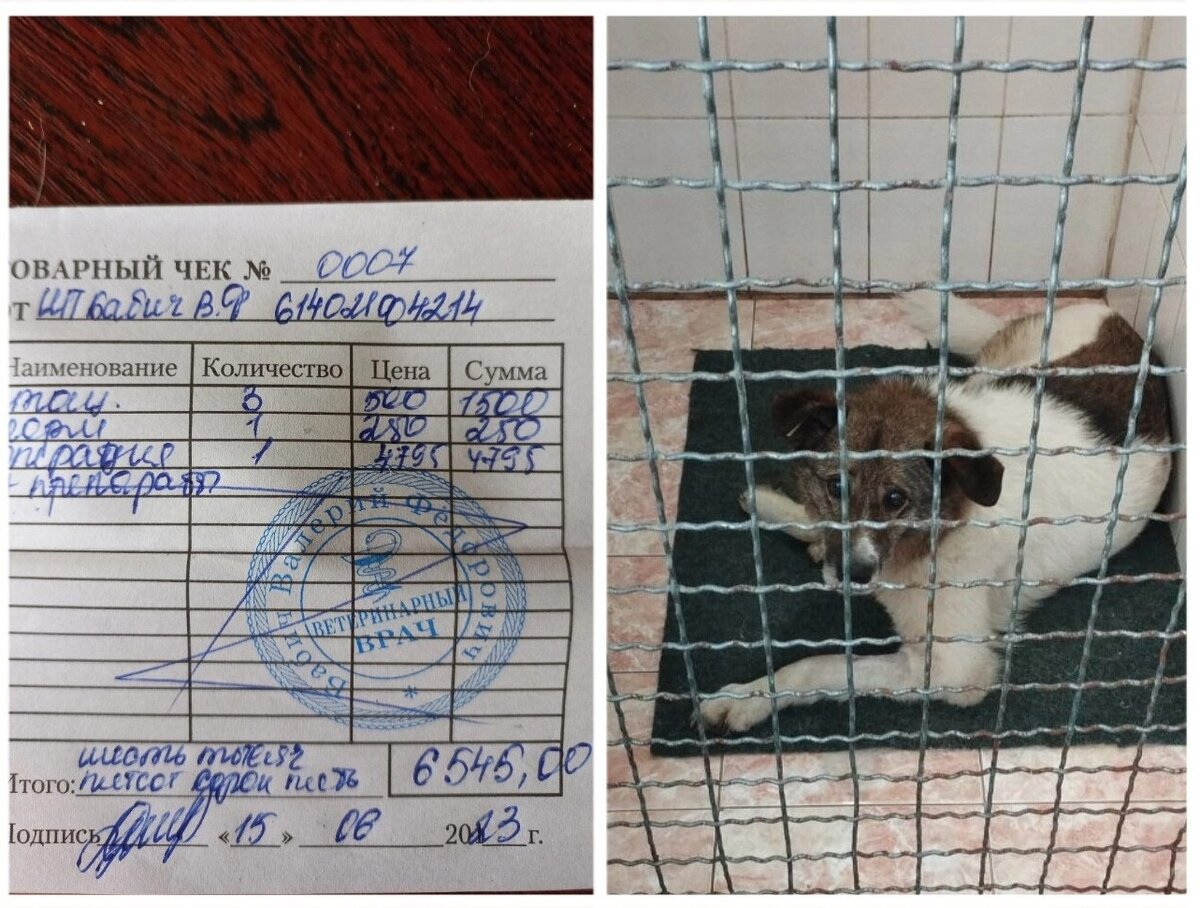 ОВАРНЫЙ ЧЕК № 0007
от ИП Бабич В.Ф 614021904214
Наименование Количество Цена Сумма
стац. 3 500 1500
корм 1 250 250
операция 1 4795 4795
+ препараты
Бабич Валерий Федорович
ВЕТЕРИНАРНЫЙ
ВРАЧ
*
шесть тысяч
Итого: пятсот сорок пять 6545,00
Подпись «15» 06 2023 г.